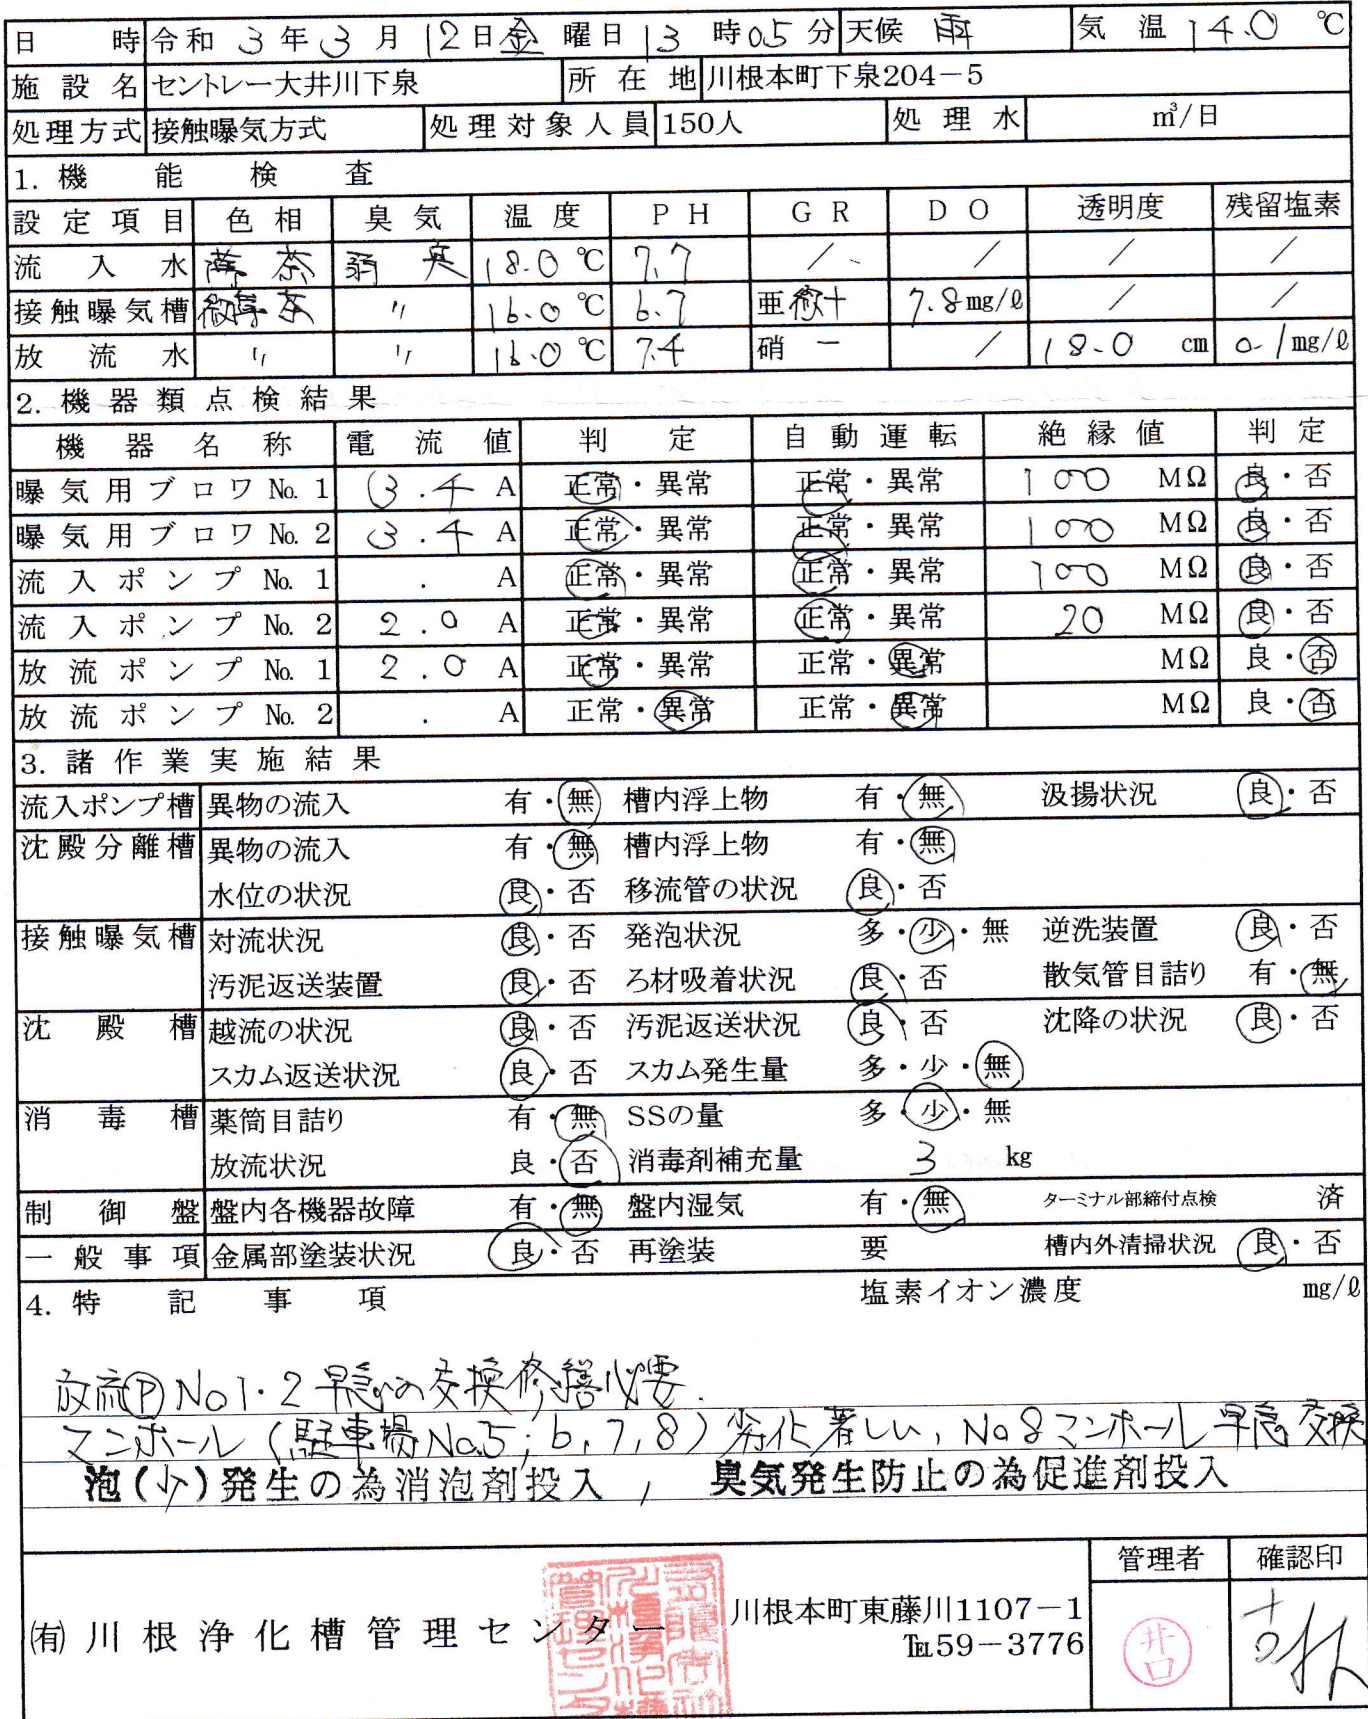 日 時 令和 3 年 3 月 12 日 金 曜日 13 時 05 分 天候 雨 気温 14.0 ℃
施設名 セントレー大井川下泉 所在地 川根本町下泉204-5
処理方式 接触曝気方式 処理対象人員 150人 処理水 ㎥/日
1. 機能検査
設定項目 色相 臭気 温度 PH GR DO 透明度 残留塩素
流入水 薄茶 弱臭 18.0 ℃ 7.7 / / / /
接触曝気槽 微薄茶 〃 16.0 ℃ 6.7 亜硝+ 7.8 mg/ℓ / /
放流水 〃 〃 16.0 ℃ 7.4 硝 - / 18.0 cm 0.1 mg/ℓ
2. 機器類点検結果
機器名称 電流値 判定 自動運転 絶縁値 判定
曝気用ブロワ No. 1 3.4 A 正常・異常 正常・異常 100 MΩ 良・否
曝気用ブロワ No. 2 3.4 A 正常・異常 正常・異常 100 MΩ 良・否
流入ポンプ No. 1 . A 正常・異常 正常・異常 100 MΩ 良・否
流入ポンプ No. 2 2.0 A 正常・異常 正常・異常 20 MΩ 良・否
放流ポンプ No. 1 2.0 A 正常・異常 正常・異常 MΩ 良・否
放流ポンプ No. 2 . A 正常・異常 正常・異常 MΩ 良・否
3. 諸作業実施結果
流入ポンプ槽 異物の流入 有・無 槽内浮上物 有・無 汲揚状況 良・否
沈殿分離槽 異物の流入 有・無 槽内浮上物 有・無
水位の状況 良・否 移流管の状況 良・否
接触曝気槽 対流状況 良・否 発泡状況 多・少・無 逆洗装置 良・否
汚泥返送装置 良・否 ろ材吸着状況 良・否 散気管目詰り 有・無
沈殿槽 越流の状況 良・否 汚泥返送状況 良・否 沈降の状況 良・否
スカム返送状況 良・否 スカム発生量 多・少・無
消毒槽 薬筒目詰り 有・無 SSの量 多・少・無
放流状況 良・否 消毒剤補充量 3 kg
制御盤 盤内各機器故障 有・無 盤内湿気 有・無 ターミナル部締付点検 済
一般事項 金属部塗装状況 良・否 再塗装 要 槽内外清掃状況 良・否
4. 特記事項 塩素イオン濃度 mg/ℓ
放流Ⓟ No1・2 早急の交換修繕必要.
マンホール (駐車場No.5,6,7,8) 劣化著しい, No8マンホール早急交換
泡(少)発生の為消泡剤投入, 臭気発生防止の為促進剤投入
管理者 確認印
㈲川根浄化槽管理センター 川根本町東藤川1107-1
℡59-3776
井口